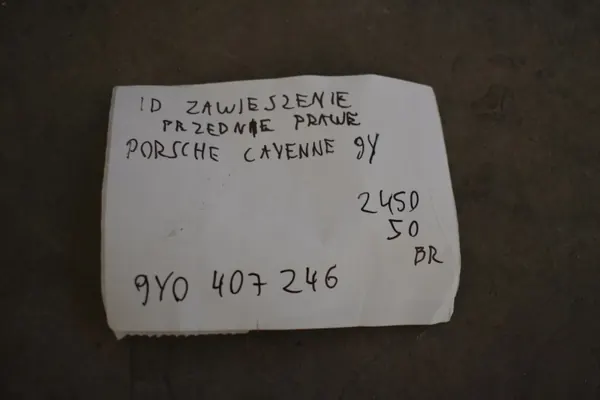 ID ZAWIESZENIE
PRZEDNIE PRAWE
PORSCHE CAYENNE 9Y
2450
50
BR
9Y0 407 246